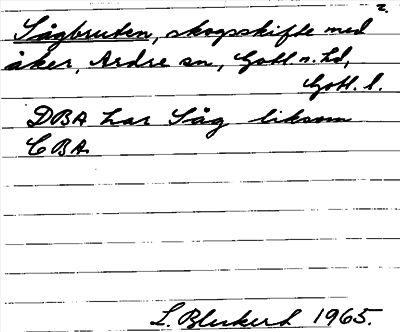 2.
Sågbruten, skogsskifte med
åker, Ardre sn, Gotl n. hd,
Gotl. l.
DBA har Såg liksom
CBA.
L. Bleckert 1965.